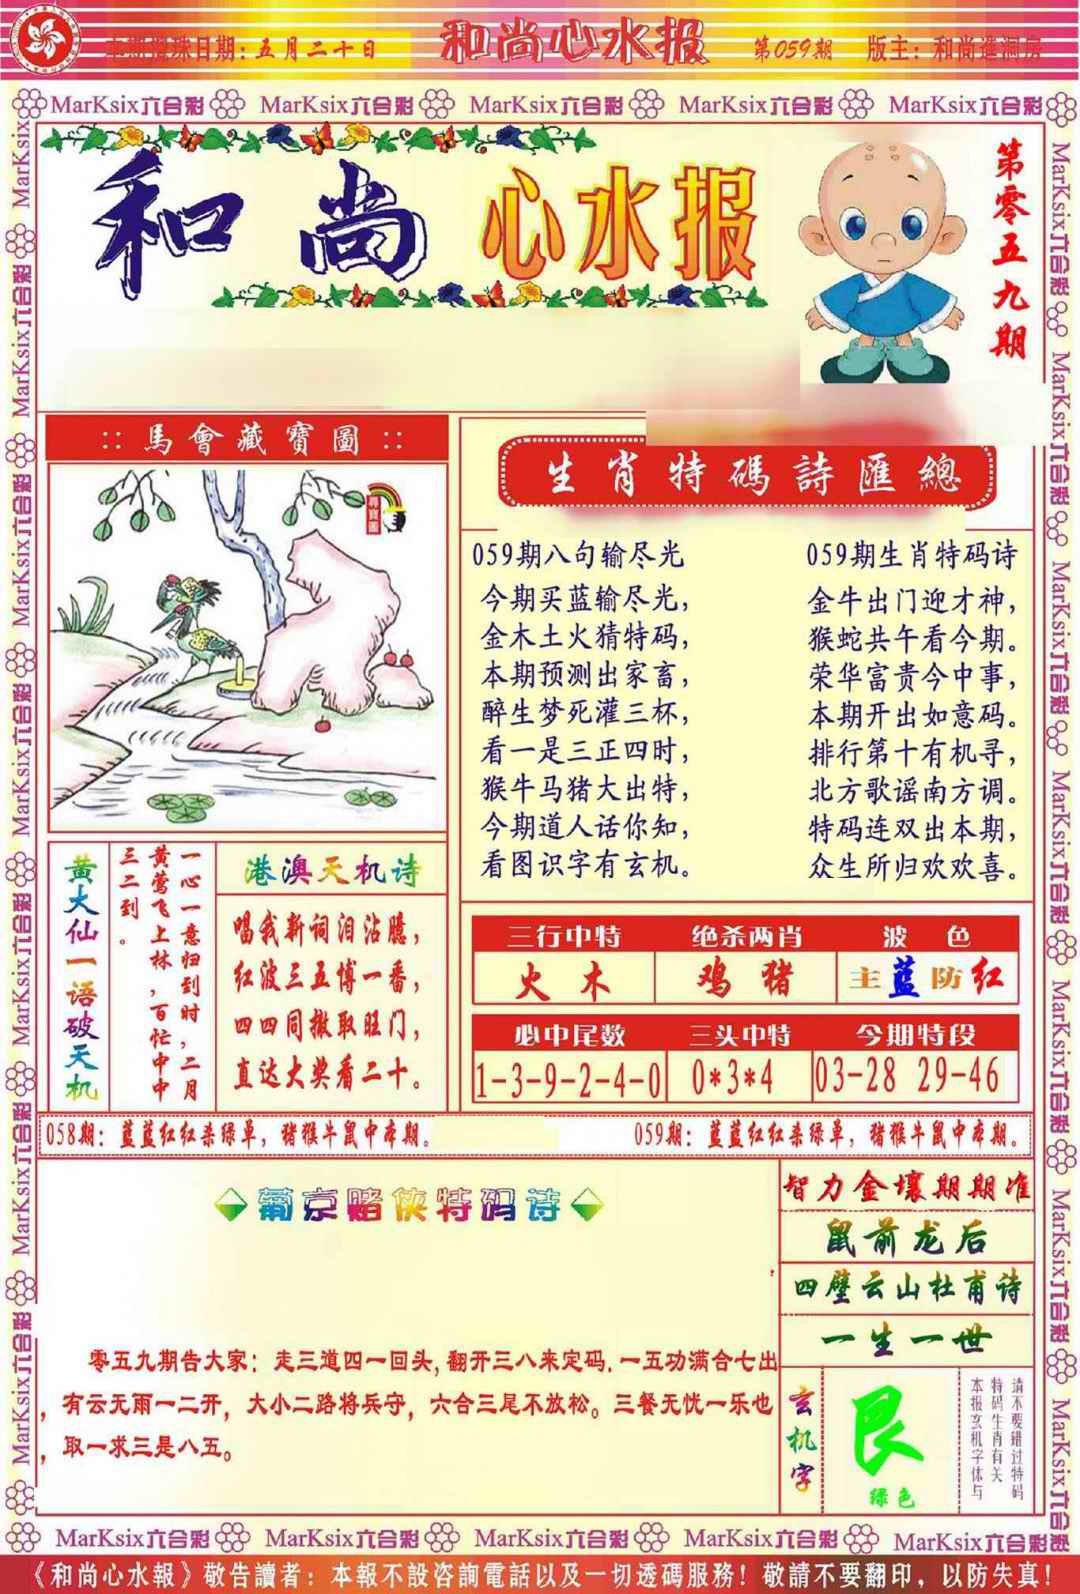 本期攪珠日期:五月二十日
和尚心水报
第059期
版主:和尚進洞房
MarKsix六合彩 MarKsix六合彩 MarKsix六合彩 MarKsix六合彩 MarKsix六合彩
和尚心水报
第零五九期
::馬會藏寶圖::
生肖特碼詩匯總
059期八句输尽光
今期买蓝输尽光，
金木土火猜特码，
本期预测出家畜，
醉生梦死灌三杯，
看一是三正四时，
猴牛马猪大出特，
今期道人话你知，
看图识字有玄机。
059期生肖特码诗
金牛出门迎才神，
猴蛇共午看今期。
荣华富贵今中事，
本期开出如意码。
排行第十有机寻，
北方歌谣南方调。
特码连双出本期，
众生所归欢欢喜。
黄大仙一语破天机
一心一意归到时，二月
黄莺飞上林，百忙中中
三二到。
港澳天机诗
唱我新词泪沾臆，
红波三五博一番，
四四同撤取旺门，
直达大奖看二十。
三行中特 绝杀两肖 波色
火木 鸡猪 主蓝防红
必中尾数 三头中特 今期特段
1-3-9-2-4-0 0*3*4 03-28 29-46
058期：蓝蓝红红杀绿单，猪猴牛鼠中本期。
059期：蓝蓝红红杀绿单，猪猴牛鼠中本期。
葡京赌侠特码诗
零五九期告大家：走三道四一回头,翻开三八来定码.一五功满合七出
，有云无雨一二开，大小二路将兵守，六合三尾不放松。三餐无忧一乐也
，取一求三是八五。
智力金壤期期准
鼠前龙后
四壁云山杜甫诗
一生一世
玄机字
艮
绿色
请不要错过特码
特码生肖有关
本报玄机字体与
MarKsix六合彩 MarKsix六合彩 MarKsix六合彩 MarKsix六合彩 MarKsix六合彩
《和尚心水報》敬告讀者：本報不設咨詢電話以及一切透碼服務！敬請不要翻印，以防失真！